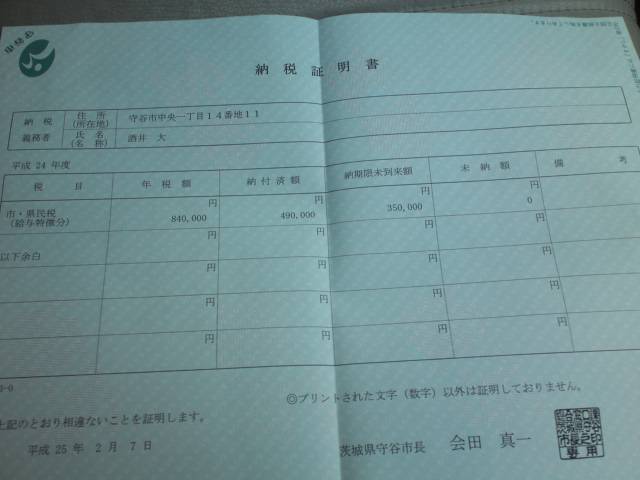 納税証明書
納税義務者
住所
(所在地)
守谷市中央一丁目14番地11
氏名
(名称)
酒井 大
平成 24 年度
税目 年税額 納付済額 納期限未到来額 未納額 備考
円 円 円 円
市・県民税
(給与特徴分)
840,000 490,000 350,000 0
円 円 円 円
以下余白
円 円 円 円
円 円 円 円
◎プリントされた文字(数字)以外は証明しておりません。
上記のとおり相違ないことを証明します。
平成 25 年 2 月 7 日
茨城県守谷市長 会田 真一